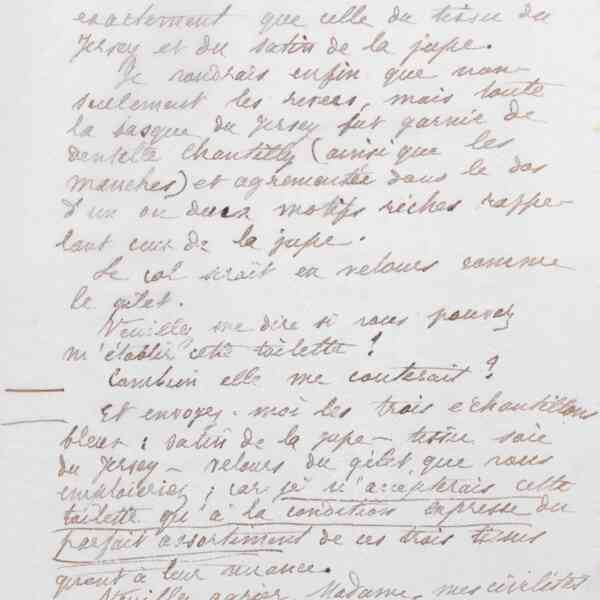 exactement que celle du tissu du
Jersey et du satin de la jupe.
Je voudrais enfin que non-
seulement les revers, mais toute
la basque du Jersey fut garnie de
dentelle Chantilly (ainsi que les
manches) et agrementée dans le dos
d'un ou deux motifs riches rappe-
lant ceux de la jupe.
Le col serait en velours comme
le gilet.
Veuillez me dire si vous pouvez
m'établir cette toilette ?
Combien elle me couterait ?
Et envoyez-moi les trois échantillons
bleus : satin de la jupe - tissu soie
du Jersey - velours du gilet que vous
emploieriez ; car je n'accepterais cette
toilette qu'à la condition expresse du
parfait assortiment de ces trois tissus
quant à leur nuance.
Veuillez agréer, Madame, mes civilités